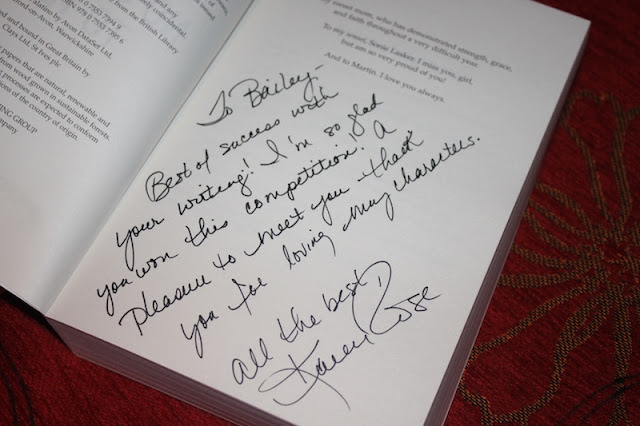 7 0 7553 7394 9
978 0 7553 7395 6
alatino by Avon DataSet Ltd,
on-Avon, Warwickshire
and bound in Great Britain by
Clays Ltd, St Ives plc
papers that are natural, renewable and
from wood grown in sustainable forests.
processes are expected to conform
ions of the country of origin.
ING GROUP
mpany
sweet mom, who has demonstrated strength, grace,
and faith throughout a very difficult year.
To my Sonie Lasker. I miss you, girl,
but am so very proud of you!
And to Martin. I love you always.
To Bailey -
Best of success with
your writing! I'm so glad
you won this competition! A
pleasure to meet you - thank
you for loving my characters.
All the best
Karen Rose